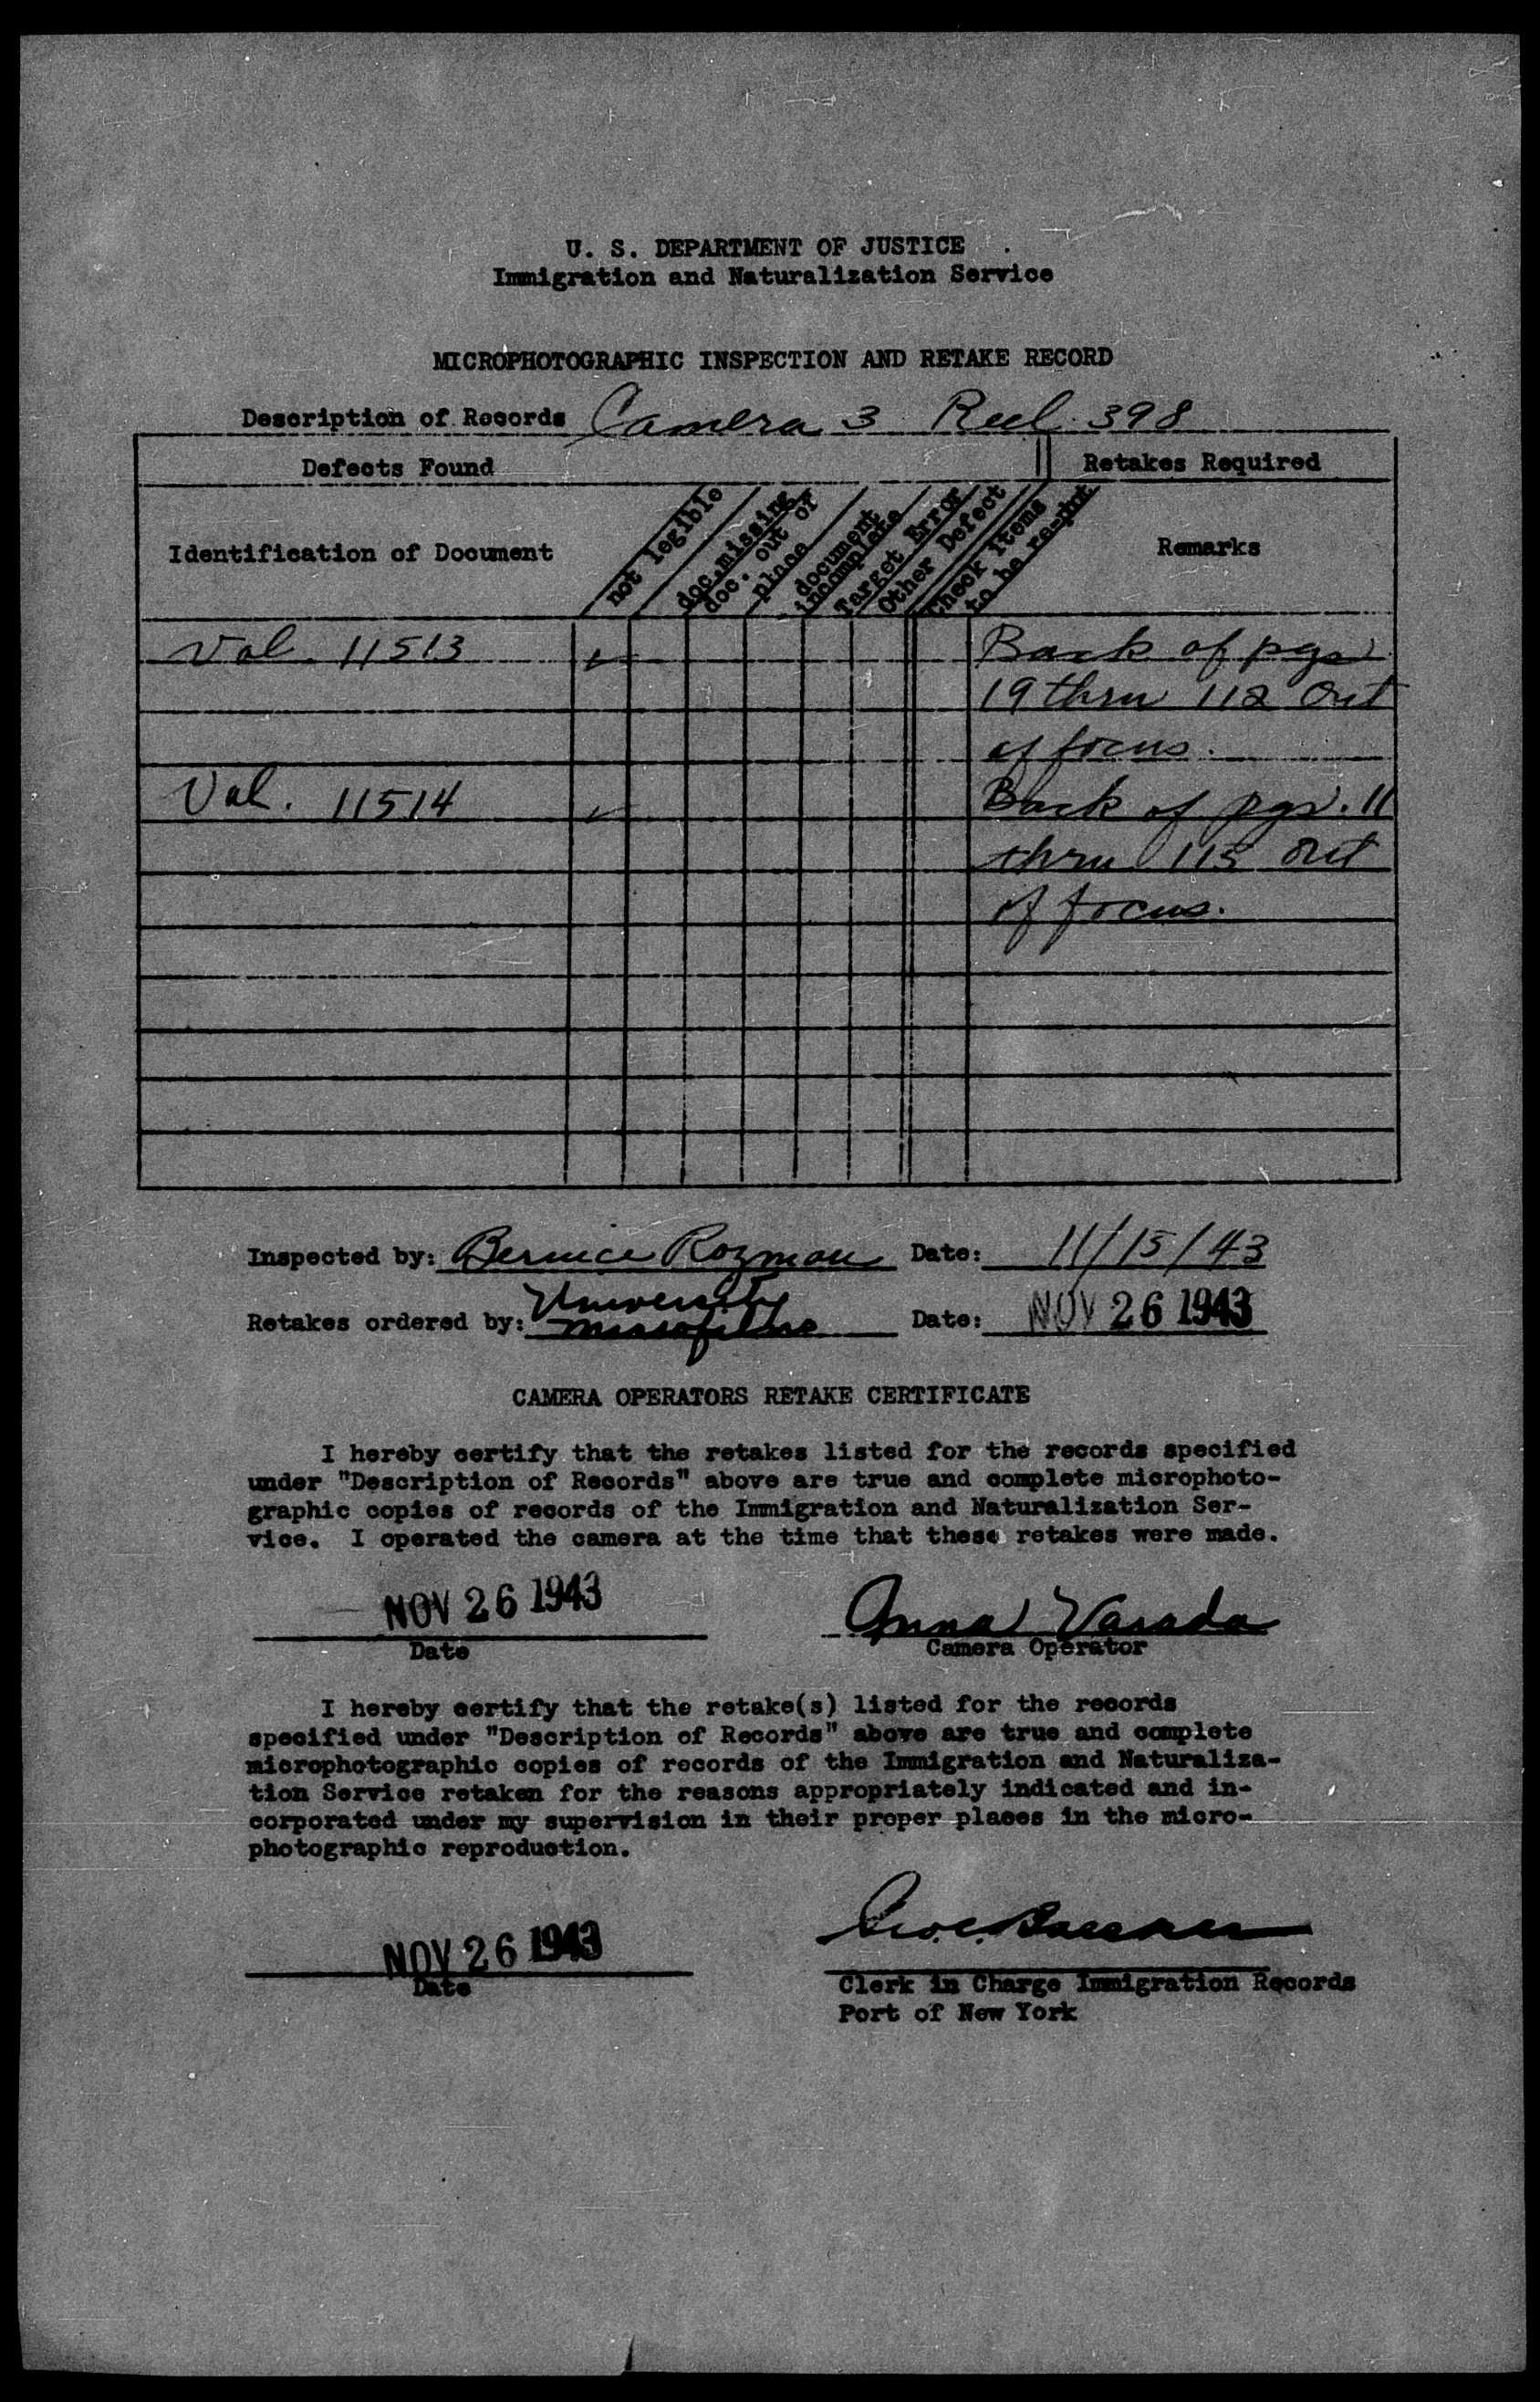 U. S. DEPARTMENT OF JUSTICE
Immigration and Naturalization Service
MICROPHOTOGRAPHIC INSPECTION AND RETAKE RECORD
Description of Records Camera 3 Reel 398
Defects Found Retakes Required
Identification of Document not legible doc. missing doc. out of place document incomplete Target Error Other Defect Check Items to be re-pht Remarks
Vol. 11513 ✓ Back of pgs
19 thru 112 Out
of focus.
Vol. 11514 ✓ Back of pgs. 11
thru 115 out
of focus.
Inspected by: Bernice Rozman Date: 11/15/43
Retakes ordered by: University Microfilms Date: NOV 26 1943
CAMERA OPERATORS RETAKE CERTIFICATE
I hereby certify that the retakes listed for the records specified
under "Description of Records" above are true and complete microphoto-
graphic copies of records of the Immigration and Naturalization Ser-
vice. I operated the camera at the time that these retakes were made.
NOV 26 1943 Anna Varada
Date Camera Operator
I hereby certify that the retake(s) listed for the records
specified under "Description of Records" above are true and complete
microphotographic copies of records of the Immigration and Naturaliza-
tion Service retaken for the reasons appropriately indicated and in-
corporated under my supervision in their proper places in the micro-
photographic reproduction.
NOV 26 1943
Date Clerk in Charge Immigration Records
Port of New York